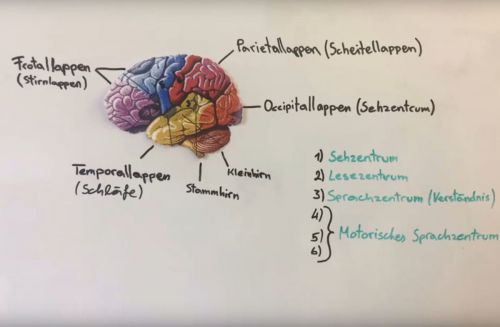 Frotallappen
(Stirnlappen)
Parietallappen (Scheitellappen)
Occipitallappen (Sehzentrum)
Temporallappen
(Schläfe)
Stammhirn
Kleinhirn
1) Sehzentrum
2) Lesezentrum
3) Sprachzentrum (Verständnis)
4)
5) Motorisches Sprachzentrum
6)